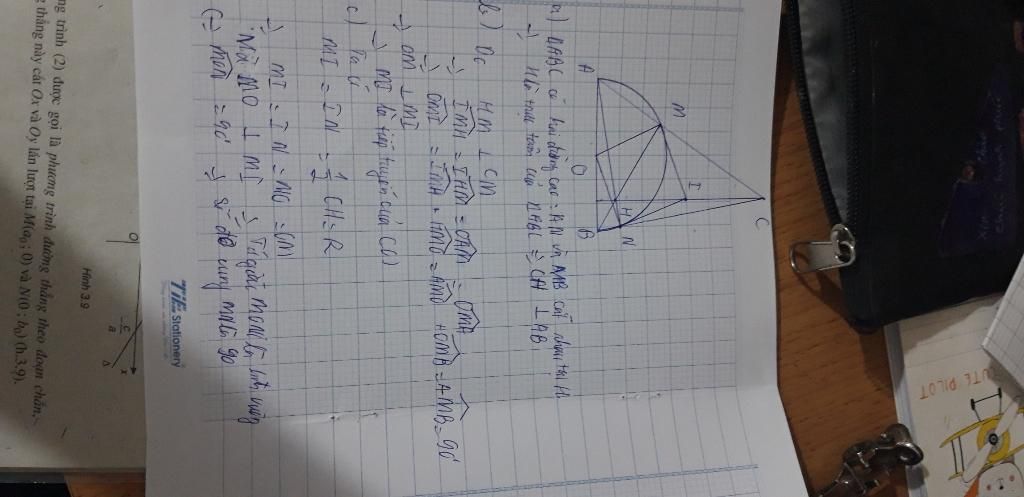 A
M
C
I
O
H
B
N
a) ΔABC có hai đường cao: AN và MB cắt nhau tại H
=> H là trực tâm của ΔABC => CH ⊥ AB
b) Dc HM ⊥ CM
=> IMH = IHM = OAM = OMA
=> OMI = IMH + HMO = HMO + OMB = AMB = 90°
=> OM ⊥ MI
=> MI là tiếp tuyến của (O)
c) Ta có
MI = IN = 1/2 CH = R
=> MI = IN = NO = OM
Mà MO ⊥ MI => Tứ giác MONI là hình vuông
(=> MON = 90° => số đo cung MN là 90
TiE
Stationery
ng trình (2) được gọi là phương trình đường thẳng theo đoạn chắn,
g thẳng này cắt Ox và Oy lần lượt tại M(a₀ ; 0) và N(0 ; b₀) (h.3.9).
Hình 3.9
O
-c
a
x
Δ
UTE PILOT